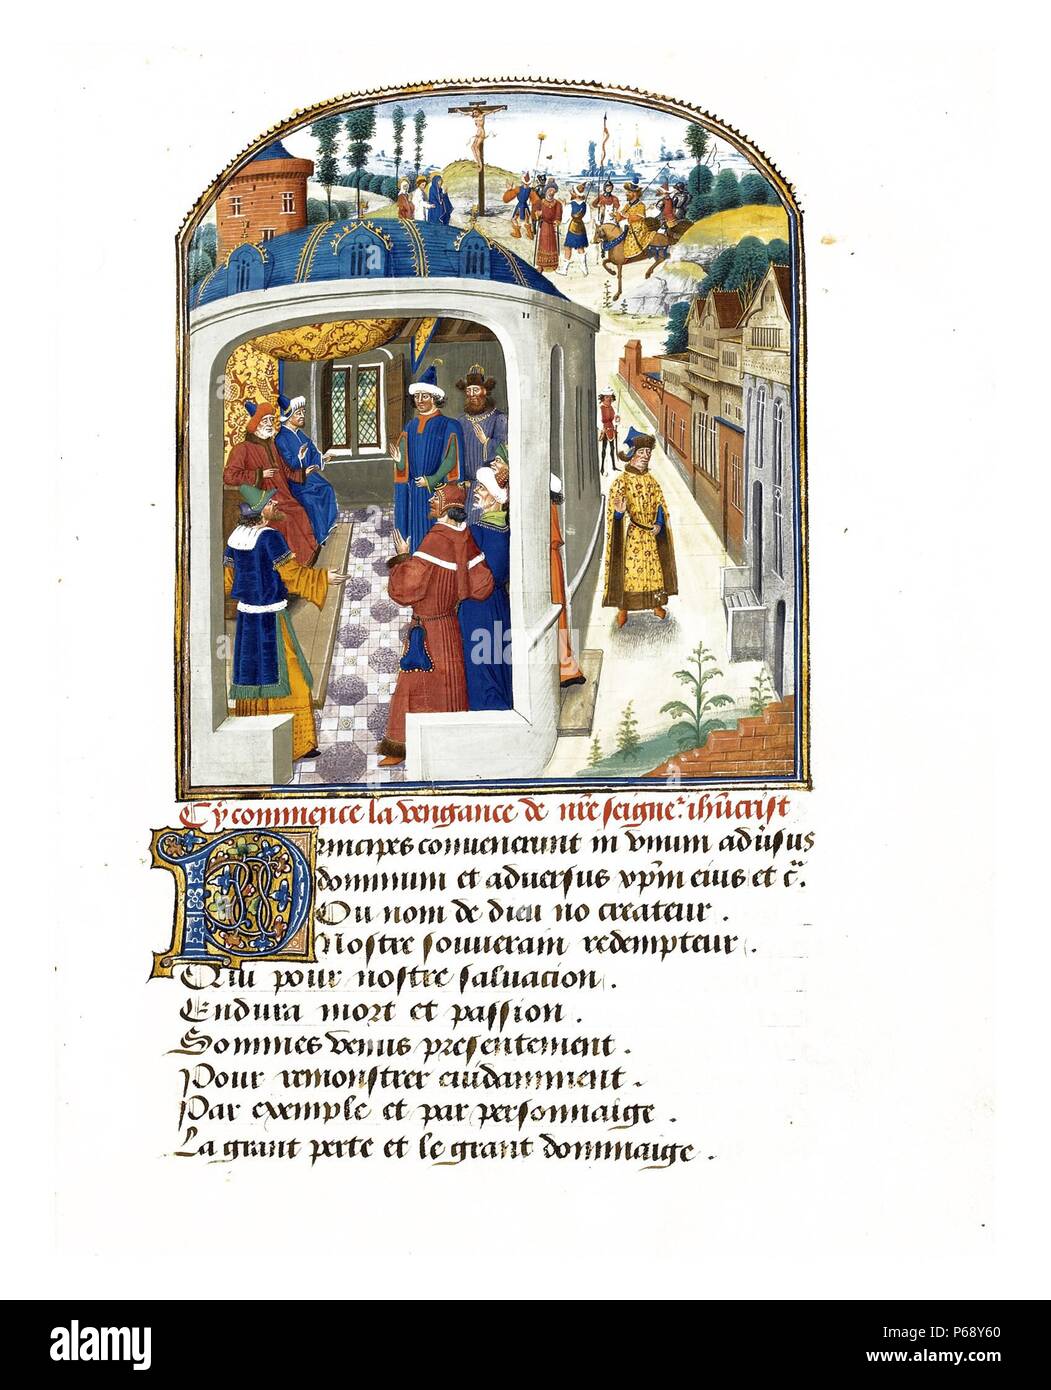 Cy commence la vengance de nr̃e seigner ihũcrist
Principes conuenerunt in vnum aduͥsus
dominum et aduersus xp̃m eius et cᷓ.
Ou nom de dieu no createur .
Nostre souuerain redempteur .
Qui pour nostre saluacion .
Endura mort et passion .
Sommes venus presentement .
Pour remonstrer euidamment .
Par exemple et par personnaige .
La grant perte et le grant dommaige .
alamy
alamy stock photo
P68Y60
www.alamy.com